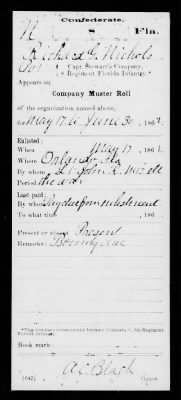 Confederate.
N 8 Fla.
Richard G. Nichols
Pvt Capt. Stewart's Company,
8 Regiment Florida Infantry.*
Appears on
Company Muster Roll
of the organization named above,
for May 17 to June 30, 1862
Enlisted:
When May 17, 1862
Where Orlando, Fla
By whom Lt. John R.
Period the war
Last paid:
By whom Pay due from enlistment
To what time , 186
Present or absent Present
Remarks: Bounty due
*This company subsequently became Company , 8th Regiment
Florida Infantry.
Book mark:
A C Black
(642) Copyist.